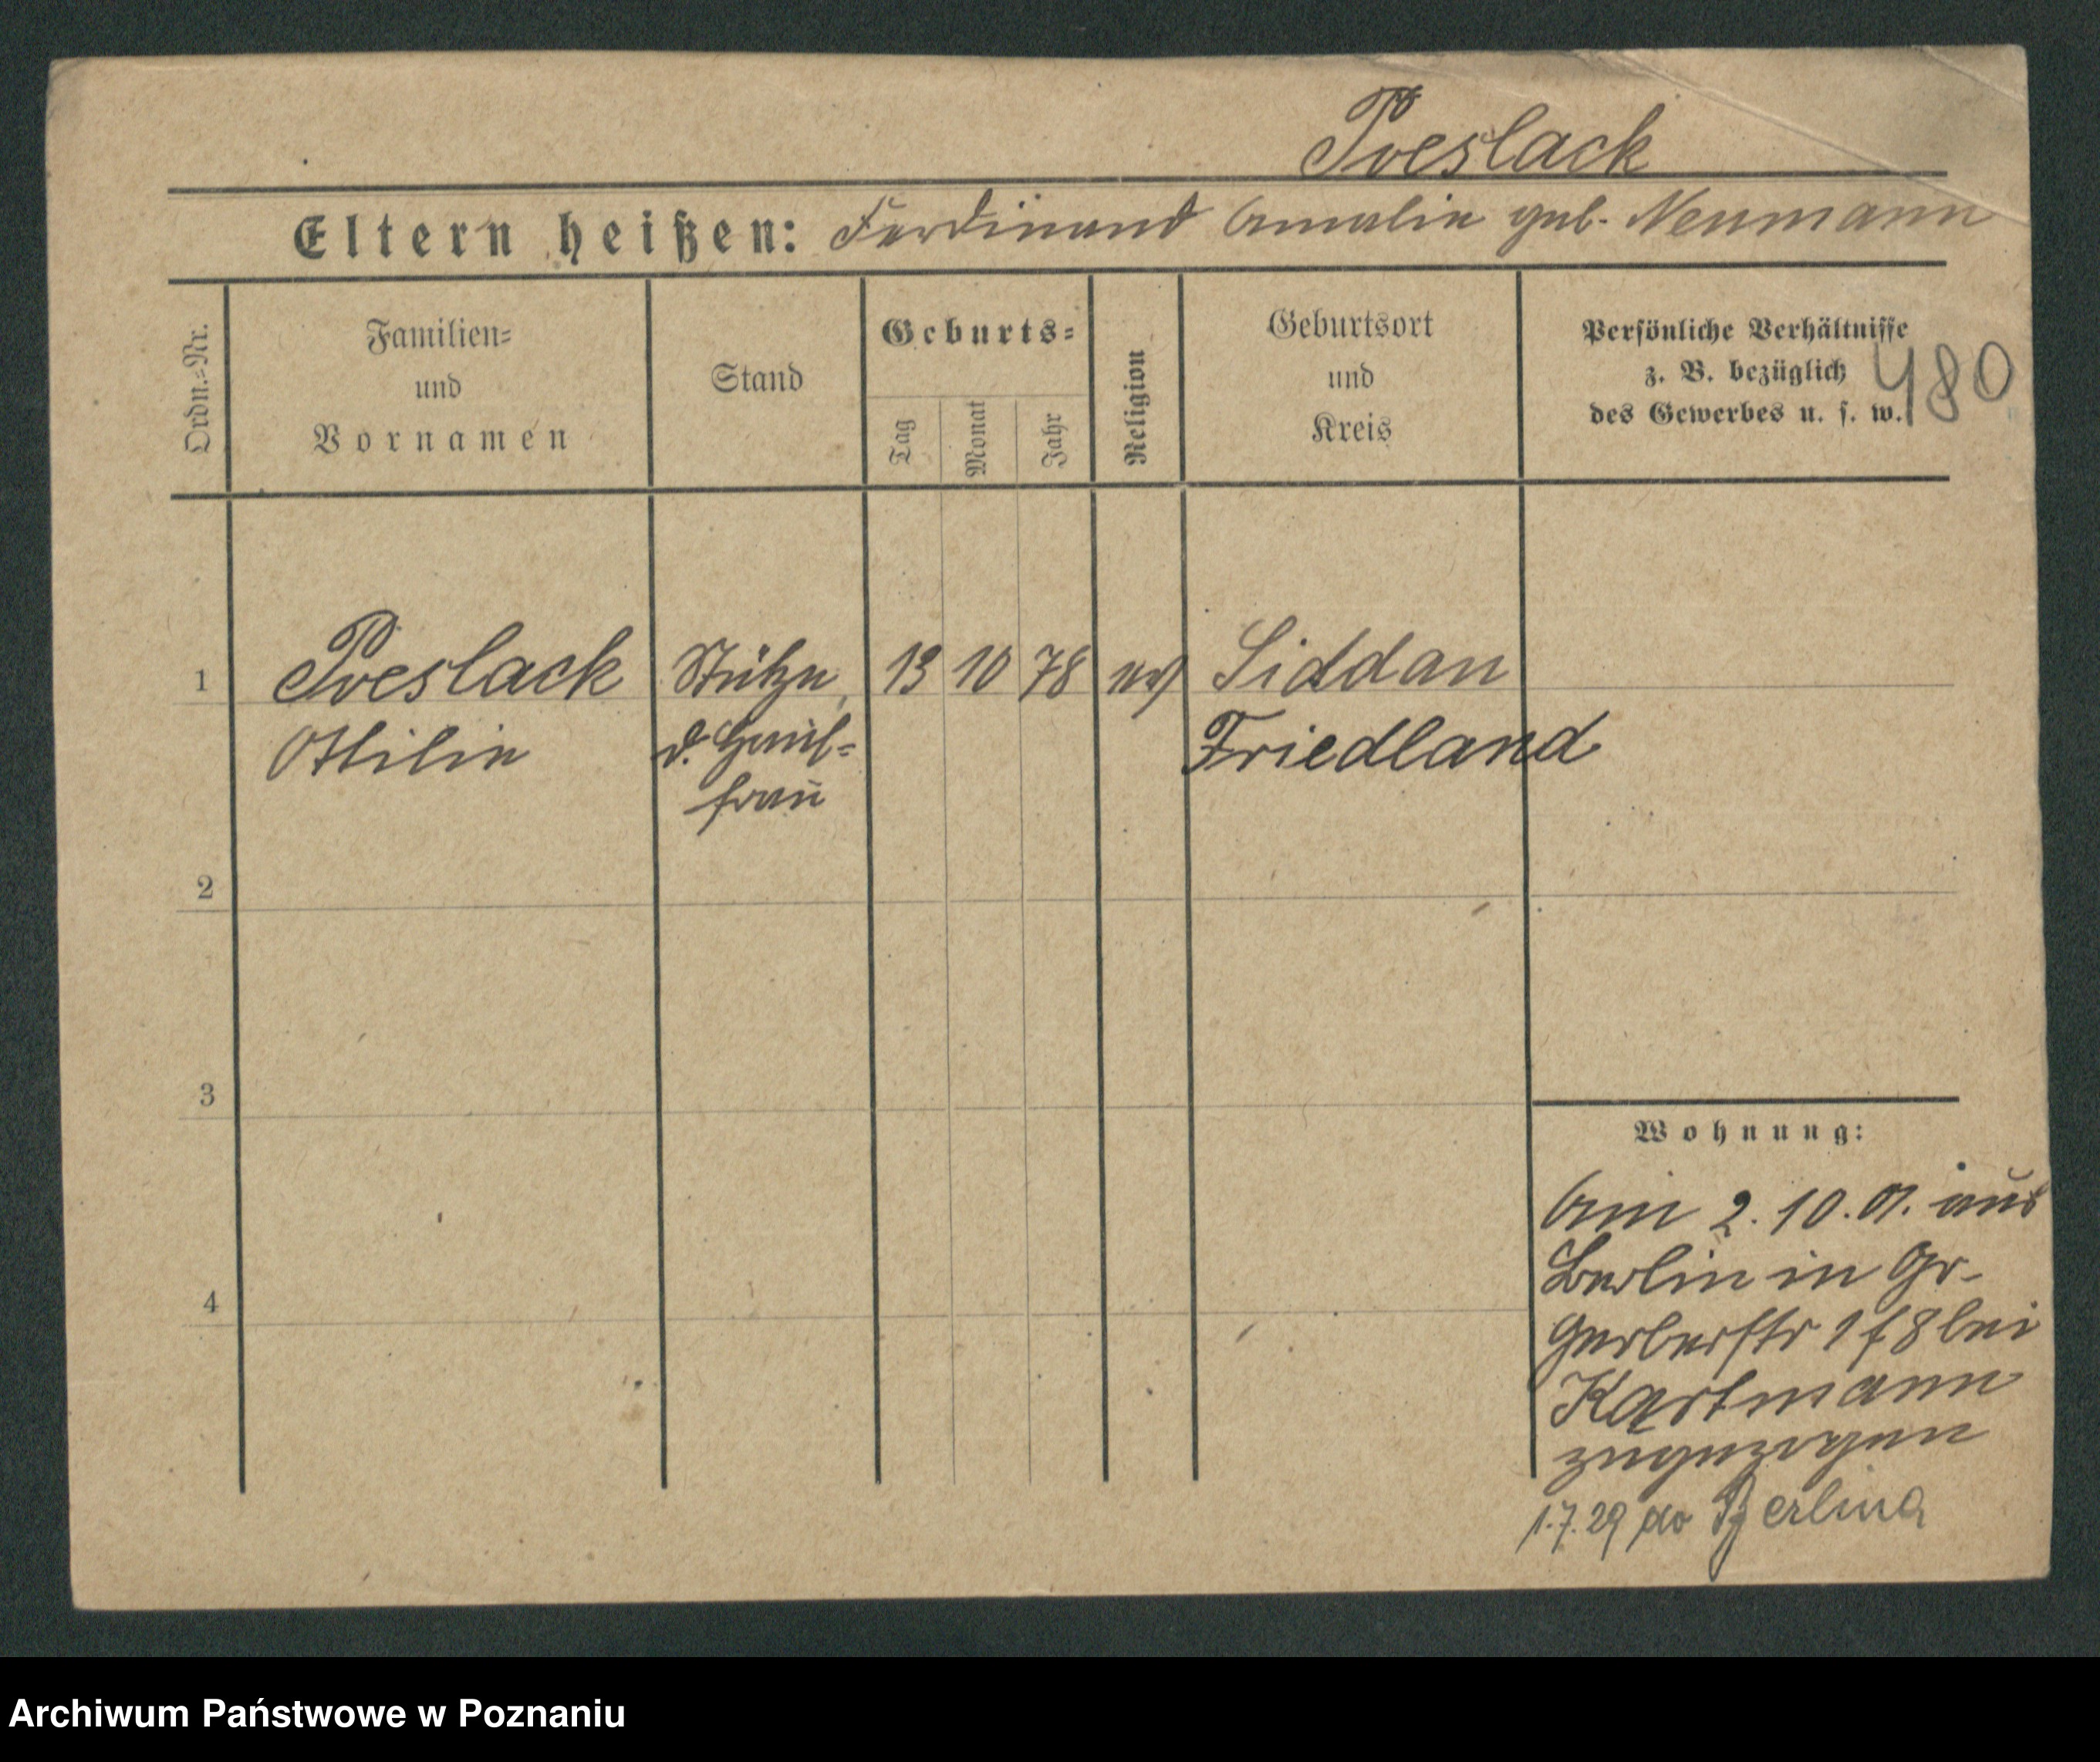 Poeslack
Eltern heißen: Ferdinand Amalie geb. Neumann
Ordn.=Nr.
Familien=
und
Vornamen
Stand
Geburts=
Tag
Monat
Jahr
Religion
Geburtsort
und
Kreis
Persönliche Verhältnisse
z. B. bezüglich
des Gewerbes u. s. w.
480
1 Poeslack Stütze 13 10 78 ev Siddau
Ottilie d. Haus= Friedland
frau
2
3
4
Wohnung:
Am 2. 10. 01. aus
Berlin in Gr.
Gerberstr 1 f 8 bei
Kartmann
zugezogen
1.7.29 do Berlina
Archiwum Państwowe w Poznaniu